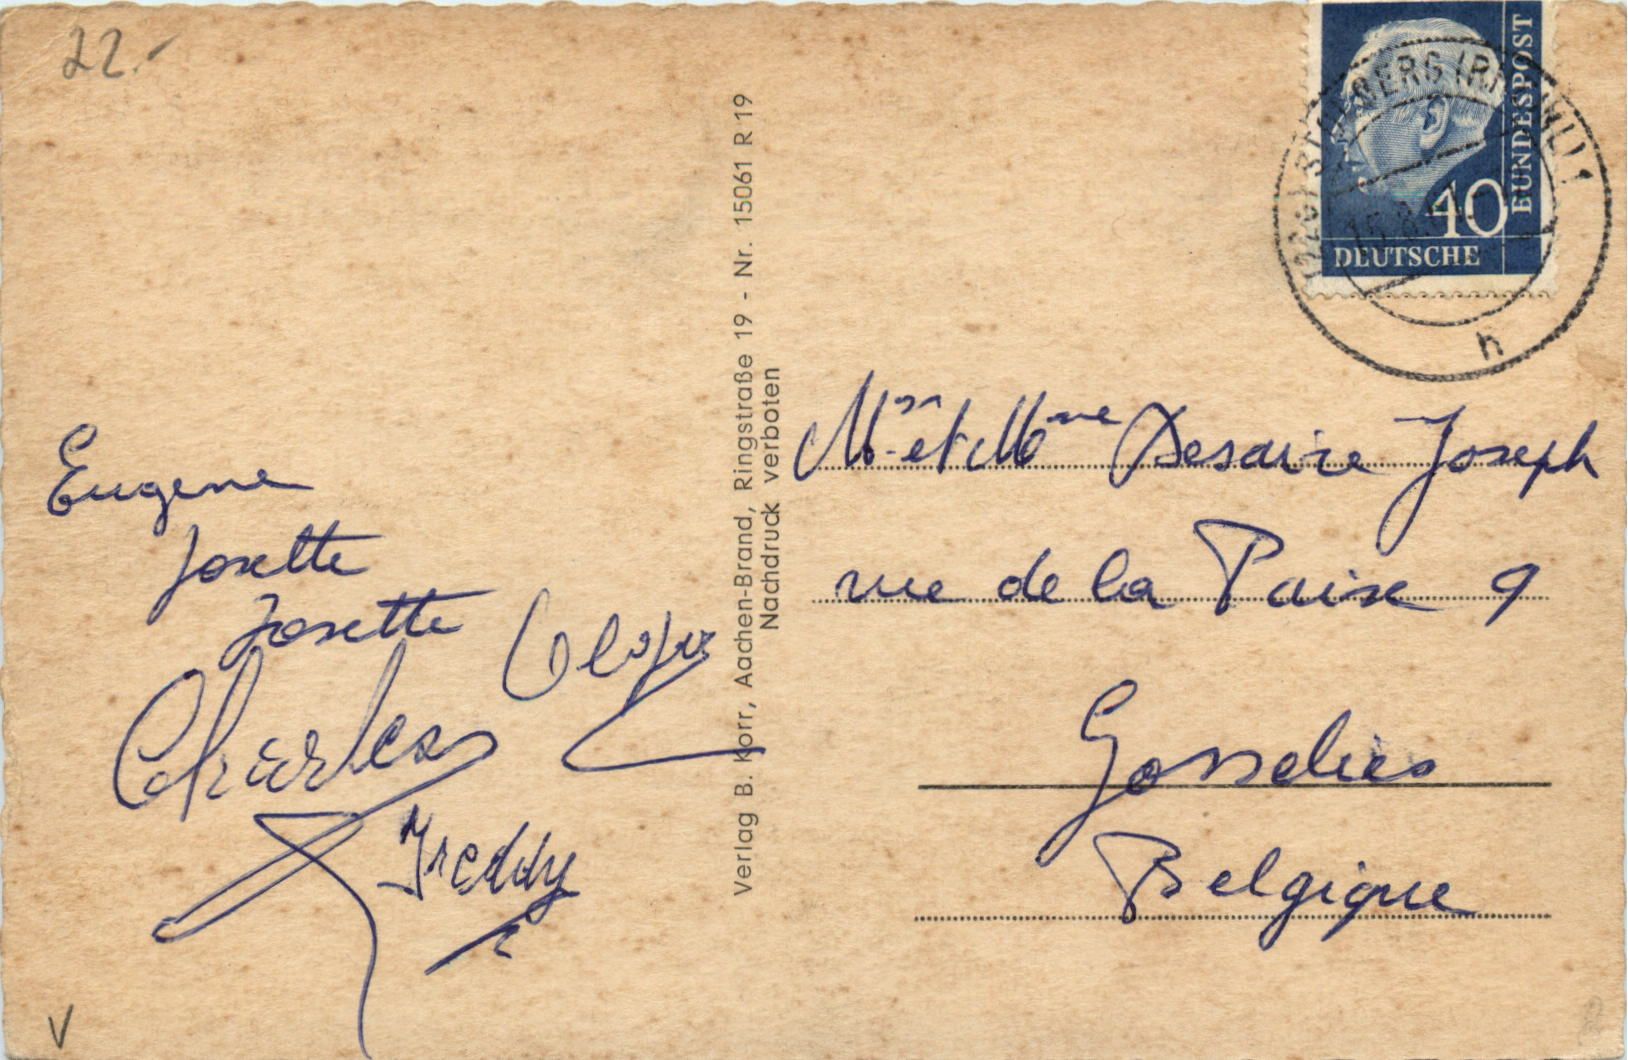 22.-
BUNDESPOST
40
DEUTSCHE
15.8.
h
Verlag B. Korr, Aachen-Brand, Ringstraße 19 - Nr. 15061 R 19
Nachdruck verboten
Eugene
Josette
Josette
Charles
Freddy
Mr et Mme Desaire Joseph
rue de la Paix 9
Gosselies
Belgique
V